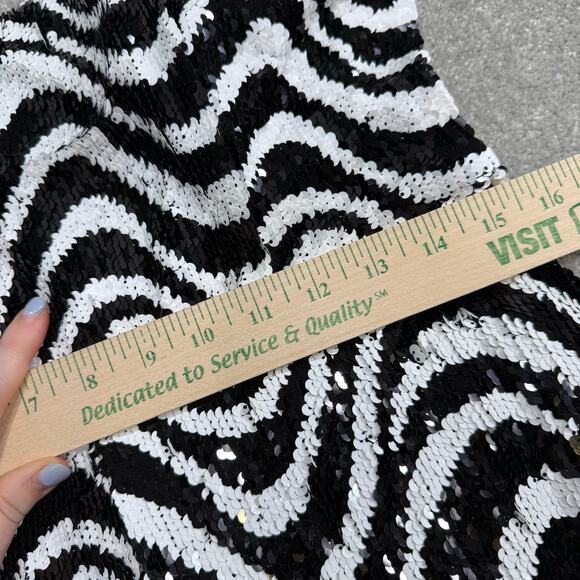 7 8 9 10 11 12 13 14 15 16
VISIT
Dedicated to Service & Quality℠